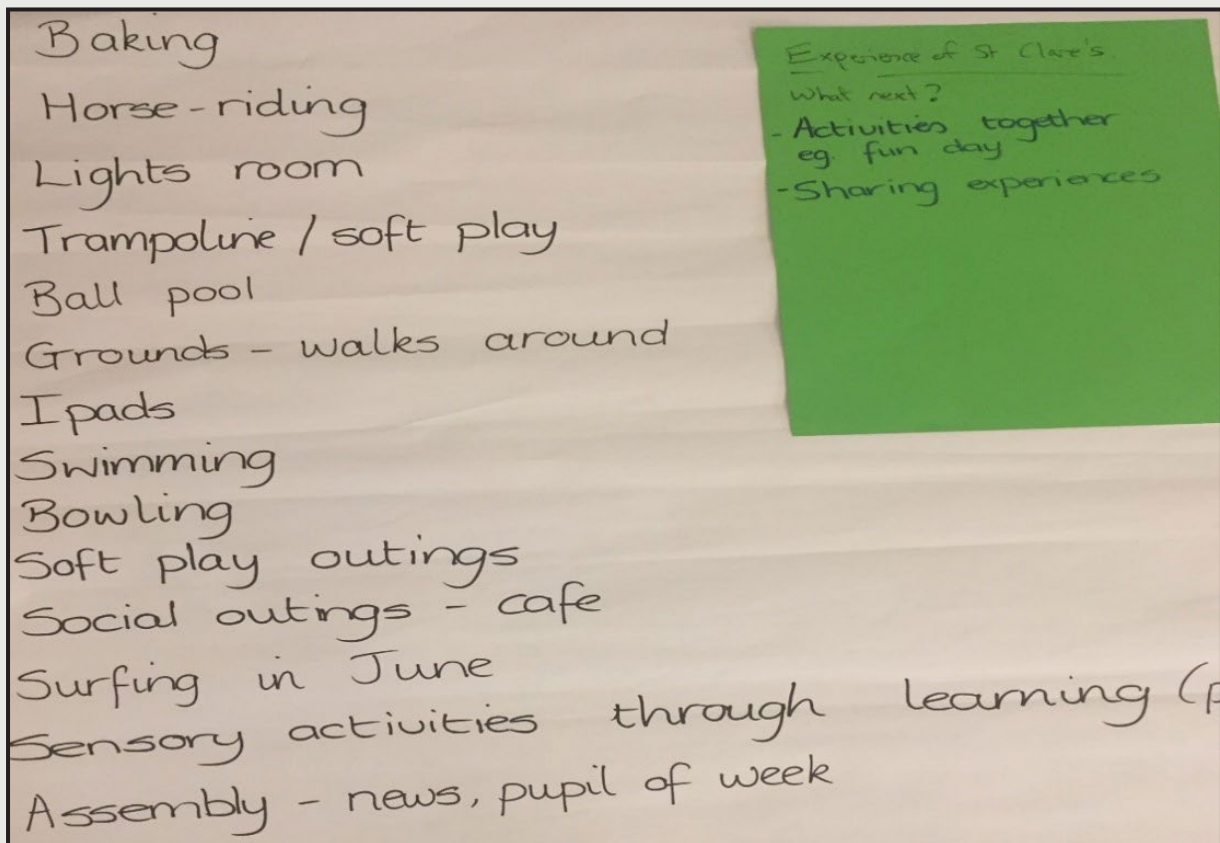 Baking
Horse-riding
Lights room
Trampoline / soft play
Ball pool
Grounds - walks around
Ipads
Swimming
Bowling
Soft play outings
Social outings - cafe
Surfing in June
Sensory activities through learning (p
Assembly - news, pupil of week
Experience of St Clare's.
What next?
- Activities together
eg. fun day
- Sharing experiences